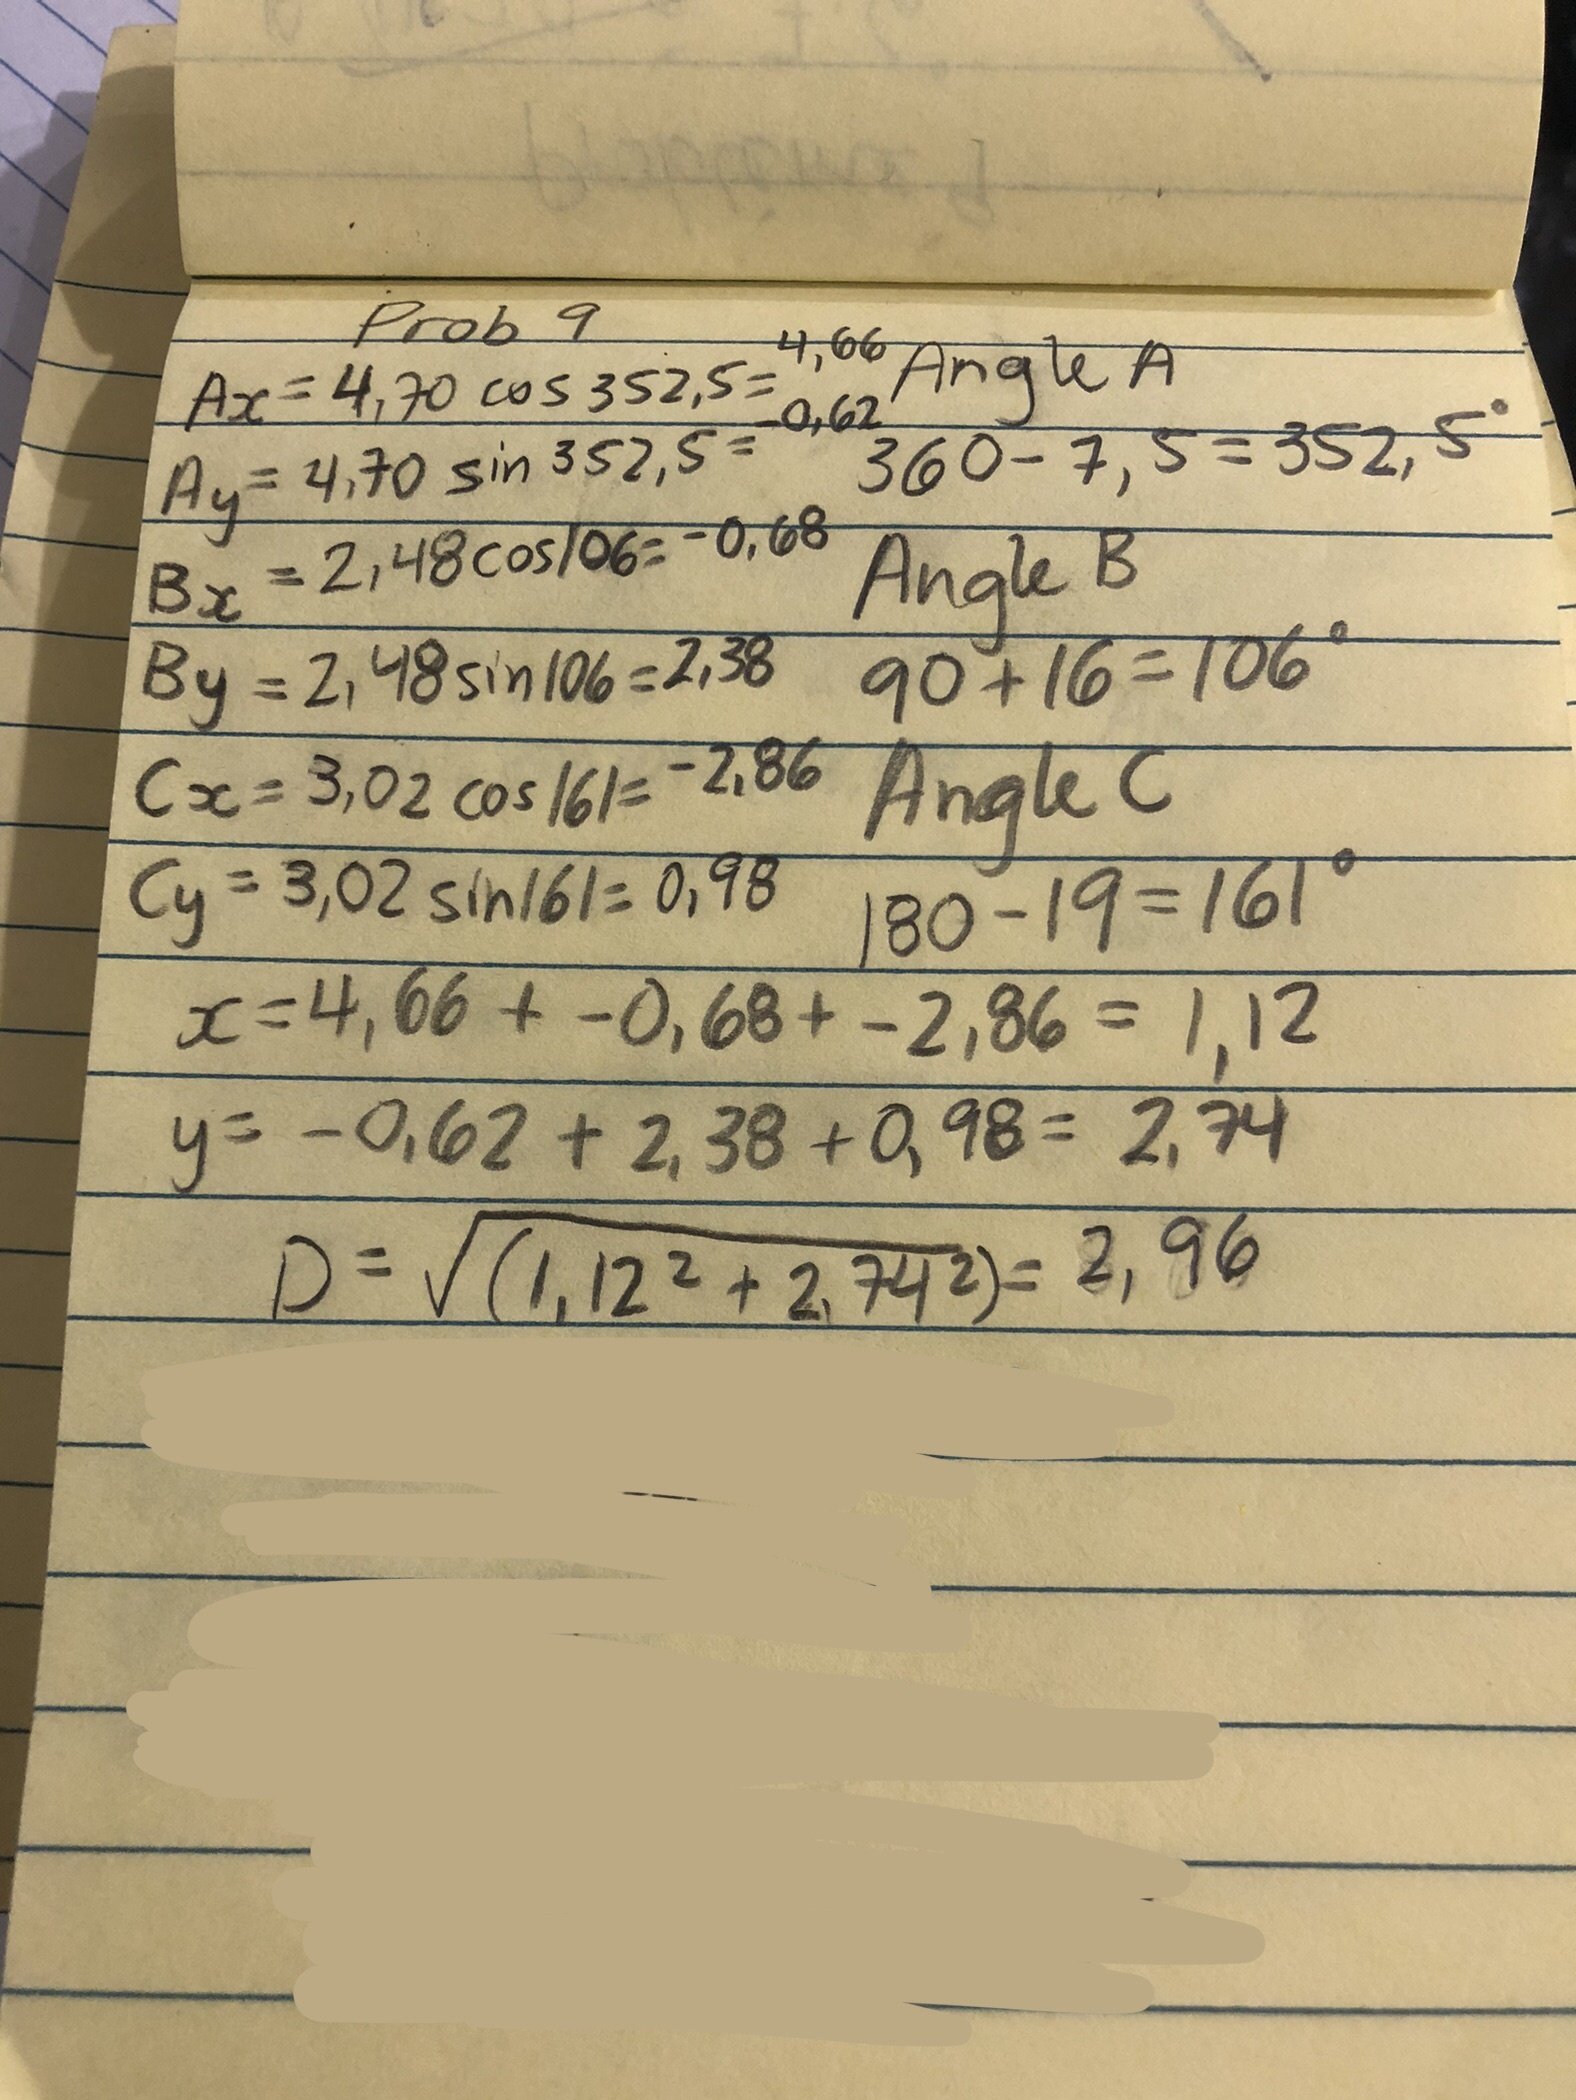 Prob 9
Ax = 4,70 cos 352,5 = 4,66 Angle A
Ay = 4,70 sin 352,5 = -0,62 360 - 7,5 = 352,5°
Bx = 2,48 cos 106 = -0,68 Angle B
By = 2,48 sin 106 = 2,38 90 + 16 = 106°
Cx = 3,02 cos 161 = -2,86 Angle C
Cy = 3,02 sin 161 = 0,98 180 - 19 = 161°
x = 4,66 + -0,68 + -2,86 = 1,12
y = -0,62 + 2,38 + 0,98 = 2,74
D = √(1,12² + 2,74²) = 2,96